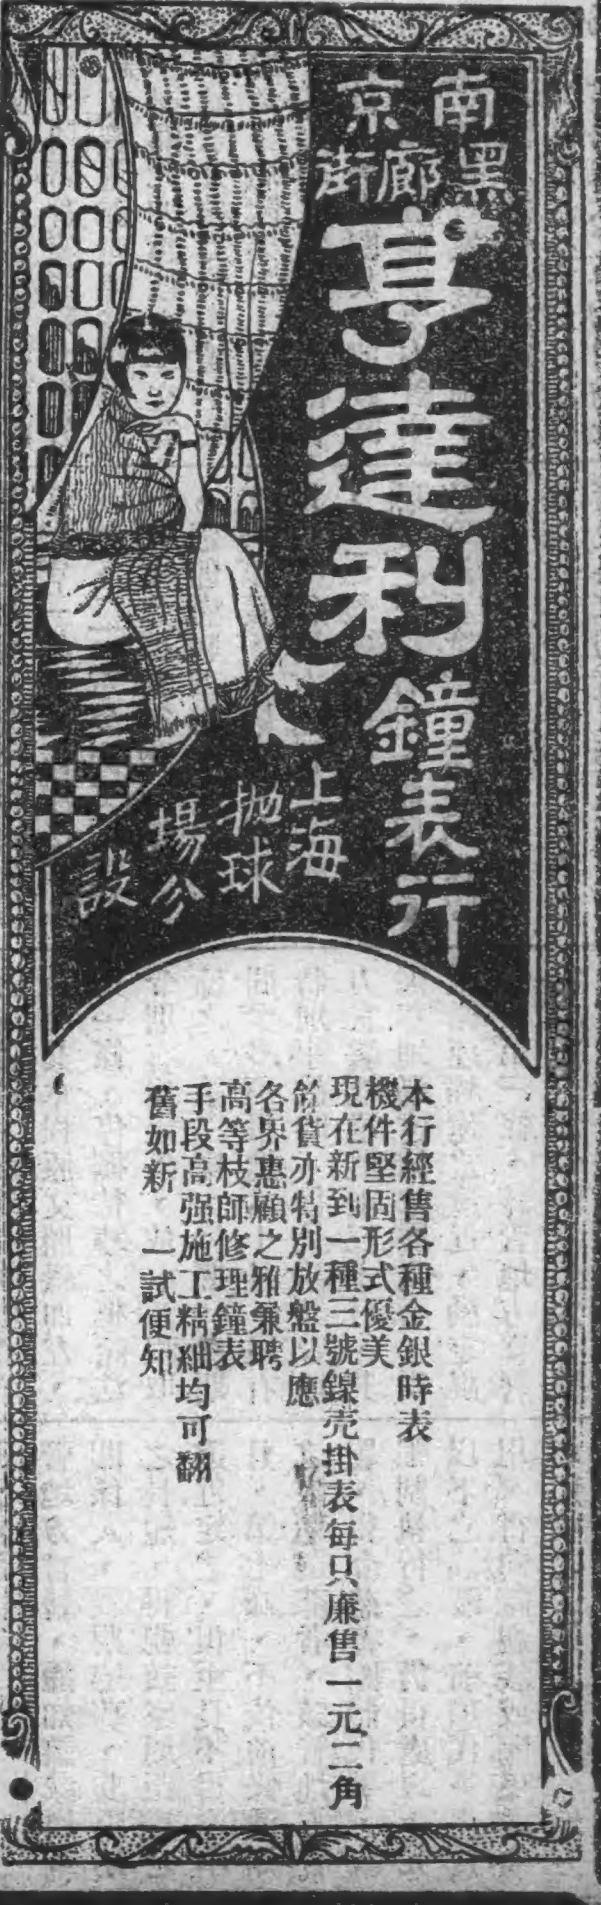 南京
黑廊街
亨達利
鐘表行
上海
拋球
場分
設
本行經售各種金銀時表
機件堅固形式優美
現在新到一種三號鎳壳掛表每只廉售一元二角
貨亦特別放盤以應
各界惠顧之雅兼聘
高等枝師修理鐘表
手段高强施工精細均可翻
舊如新 一試便知